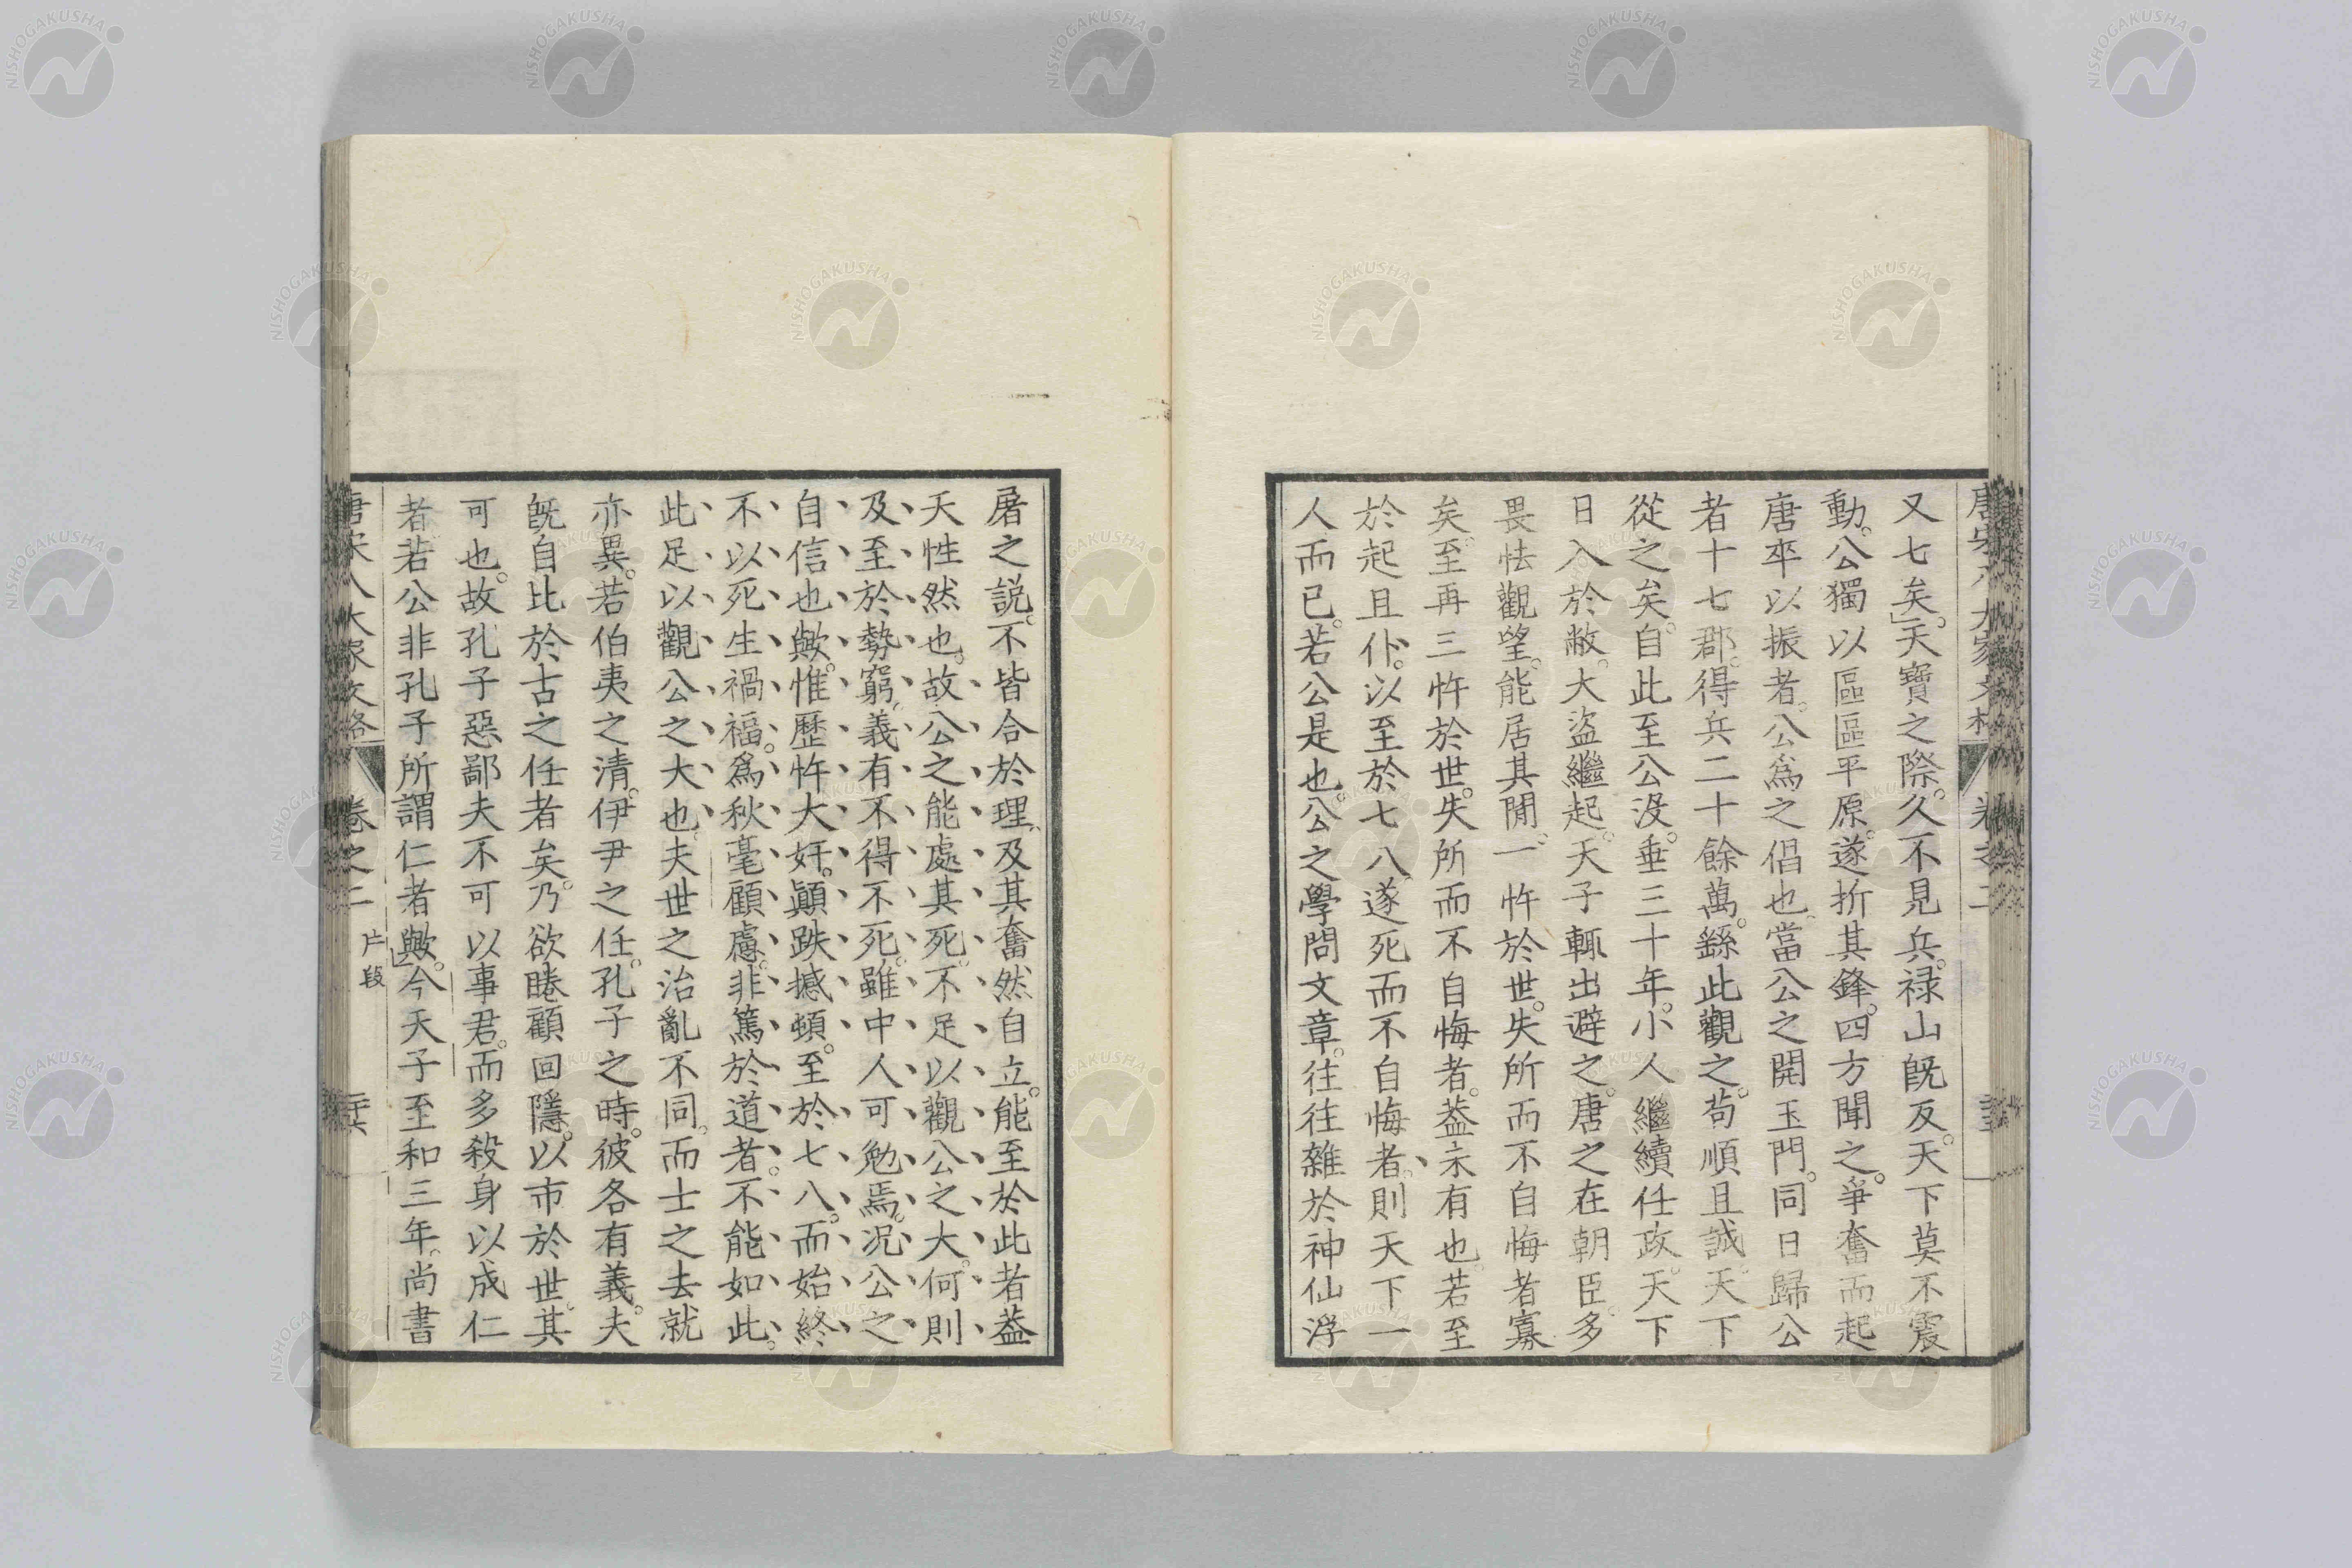 又七矣。天寶之際。久不見兵。禄山既反。天下莫不震
動。公獨以區區平原。遂折其鋒。四方聞之。爭奮而起
唐卒以振者。公爲之倡也。當公之開玉門。同日歸公
者十七郡。得兵二十餘萬。繇此觀之。苟順且誠。天下
從之矣。自此至公没。垂三十年。小人繼續任政。天下
日入於敝。大盗繼起。天子輒出避之。唐之在朝臣。多
畏怯觀望。能居其閒。一忤於世。失所而不自悔者寡
矣。至再三忤於世。失所而不自悔者。葢未有也。若至
於起且仆。以至於七八。遂死而不自悔者。則天下一
人而已。若公是也。公之學問文章。往往雜於神仙浮
屠之説。不皆合於理。及其奮然自立。能至於此者葢
天性然也。故公之能處其死。不足以觀公之大。何則
及至於勢窮。義有不得不死。雖中人可勉焉。况公之
自信也歟。惟歴忤大奸。顛跌撼頓。至於七八。而始終
不以死生禍福。爲秋毫顧慮。非篤於道者。不能如此。
此足以觀公之大也。夫世之治亂不同。而士之去就
亦異。若伯夷之清。伊尹之任。孔子之時。彼各有義。夫
既自比於古之任者矣。乃欲睠顧回隱。以市於世。其
可也。故孔子惡鄙夫不可以事君。而多殺身以成仁
者。若公非孔子所謂仁者歟。」今天子至和三年。尚書
片段
唐宋八大家文格 卷之二
NISHOGAKUSHA